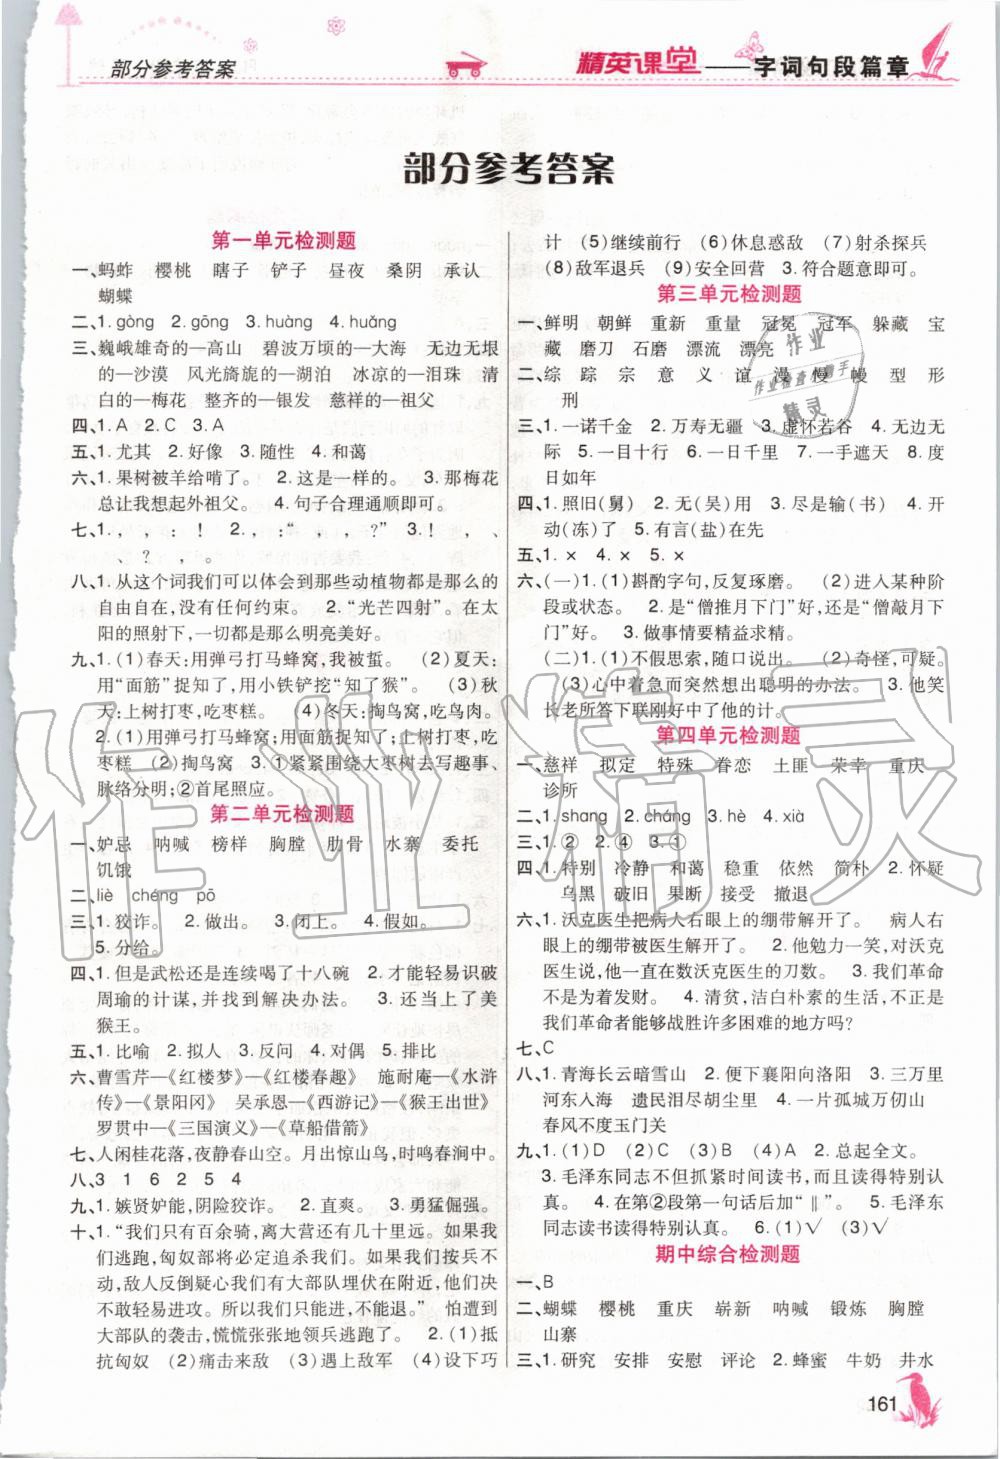 部分参考答案
精英课堂——字词句段篇章
部分参考答案
第一单元检测题
一、蚂蚱 樱桃 瞎子 铲子 昼夜 桑阴 承认
蝴蝶
二、1.gòng 2.gōng 3.huàng 4.huǎng
三、巍峨雄奇的—高山 碧波万顷的—大海 无边无垠
的—沙漠 风光旖旎的—湖泊 冰凉的—泪珠 清
白的—梅花 整齐的—银发 慈祥的—祖父
四、1.A 2.C 3.A
五、1.尤其 2.好像 3.随性 4.和蔼
六、1.果树被羊给啃了。 2.这是一样的。 3.那梅花
总让我想起外祖父。 4.句子合理通顺即可。
七、1., , : ! 2.:“ , , ?” 3.! 、 、
、 ? , 。
八、1.从这个词我们可以体会到那些动植物都是那么的
自由自在,没有任何约束。 2.“光芒四射”。在太
阳的照射下,一切都是那么明亮美好。
九、1.(1)春天:用弹弓打马蜂窝,我被蜇。 (2)夏天:
用“面筋”捉知了,用小铁铲挖“知了猴”。 (3)秋
天:上树打枣,吃枣糕。 (4)冬天:掏鸟窝,吃鸟肉。
2.(1)用弹弓打马蜂窝;用面筋捉知了;上树打枣,吃枣
糕 (2)掏鸟窝 3.①紧紧围绕大枣树去写趣事、
脉络分明;②首尾照应。
第二单元检测题
一、妒忌 呐喊 榜样 胸膛 肋骨 水寨 委托
饥饿
二、liè chéng pō
三、1.狡诈。 2.做出。 3.闭上。 4.假如。
5.分给。
四、1.但是武松还是连续喝了十八碗 2.才能轻易识破
周瑜的计谋,并找到解决办法。 3.还当上了美
猴王。
五、1.比喻 2.拟人 3.反问 4.对偶 5.排比
六、曹雪芹—《红楼梦》—《红楼春趣》 施耐庵—《水浒
传》—《景阳冈》 吴承恩—《西游记》—《猴王出世》
罗贯中—《三国演义》—《草船借箭》
七、人闲桂花落,夜静春山空。月出惊山鸟,时鸣春涧中。
八、3 1 6 2 5 4
九、1.嫉贤妒能,阴险狡诈。 2.直爽。 3.勇猛倔强。
十、1.“我们只有百余骑,离大营还有几十里远。如果我
们逃跑,匈奴部将必定追杀我们。如果我们按兵不
动,敌人反倒疑心我们有大部队埋伏在附近,他们决
不敢轻易进攻。所以我们只能进,不能退。” 怕遭到
大部队的袭击,慌慌张张地领兵逃跑了。 2.(1)抵
抗匈奴 (2)痛击来敌 (3)遇上敌军 (4)设下巧
计 (5)继续前行 (6)休息惑敌 (7)射杀探兵
(8)敌军退兵 (9)安全回营 3.符合题意即可。
第三单元检测题
一、鲜明 朝鲜 重新 重量 冠冕 冠军 躲藏 宝
藏 磨刀 石磨 漂流 漂亮
二、综 踪 宗 意 义 谊 漫 慢 幔 型 形
刑
三、1.一诺千金 2.万寿无疆 3.虚怀若谷 4.无边无
际 5.一目十行 6.一日千里 7.一手遮天 8.度
日如年
四、1.照旧(舅) 2.无(吴)用 3.尽是输(书) 4.开
动(冻)了 5.有言(盐)在先
五、1.× 4.× 5.×
六、(一)1.(1)斟酌字句,反复琢磨。 (2)进入某种阶
段或状态。 2.是“僧推月下门”好,还是“僧敲月下
门”好。 3.做事情要精益求精。
(二)1.(1)不假思索,随口说出。 (2)奇怪,可疑。
(3)心中着急而突然想出聪明的办法。 3.他笑
长老所答下联刚好中了他的计。
第四单元检测题
一、慈祥 拟定 特殊 眷恋 土匪 荣幸 重庆
诊所
二、1.shang 2.cháng 3.hè 4.xià
三、1.② 2.④ 3.①
四、1.特别 冷静 和蔼 稳重 依然 简朴 2.怀疑
乌黑 破旧 果断 接受 撤退
六、1.沃克医生把病人右眼上的绷带解开了。 病人右
眼上的绷带被医生解开了。 2.他勉力一笑,对沃克
医生说,他一直在数沃克医生的刀数。 3.我们革命
不是为着发财。 4.清贫,洁白朴素的生活,不正是
我们革命者能够战胜许多困难的地方吗?
七、C
八、1.青海长云暗雪山 2.便下襄阳向洛阳 3.南望
王师又一年 遗民泪尽胡尘里 4.一片孤城万仞山
春风不度玉门关
九、1.(1)D (2)C (3)B (4)A 2.总起全文。
3.毛泽东同志不但抓紧时间读书,而且读得特别认
真。 4.在第②段第一句话后加“‖”。 5.毛泽东
同志读书读得特别认真。 6.(1)√ (3)√
期中综合检测题
一、B
二、蝴蝶 樱桃 重庆 崭新 呐喊 锻炼 胸膛
山寨
三、1.研究 安排 安慰 评论 2.蜂蜜 牛奶 井水
161
作业
作业检查小助手
精灵
作业精灵